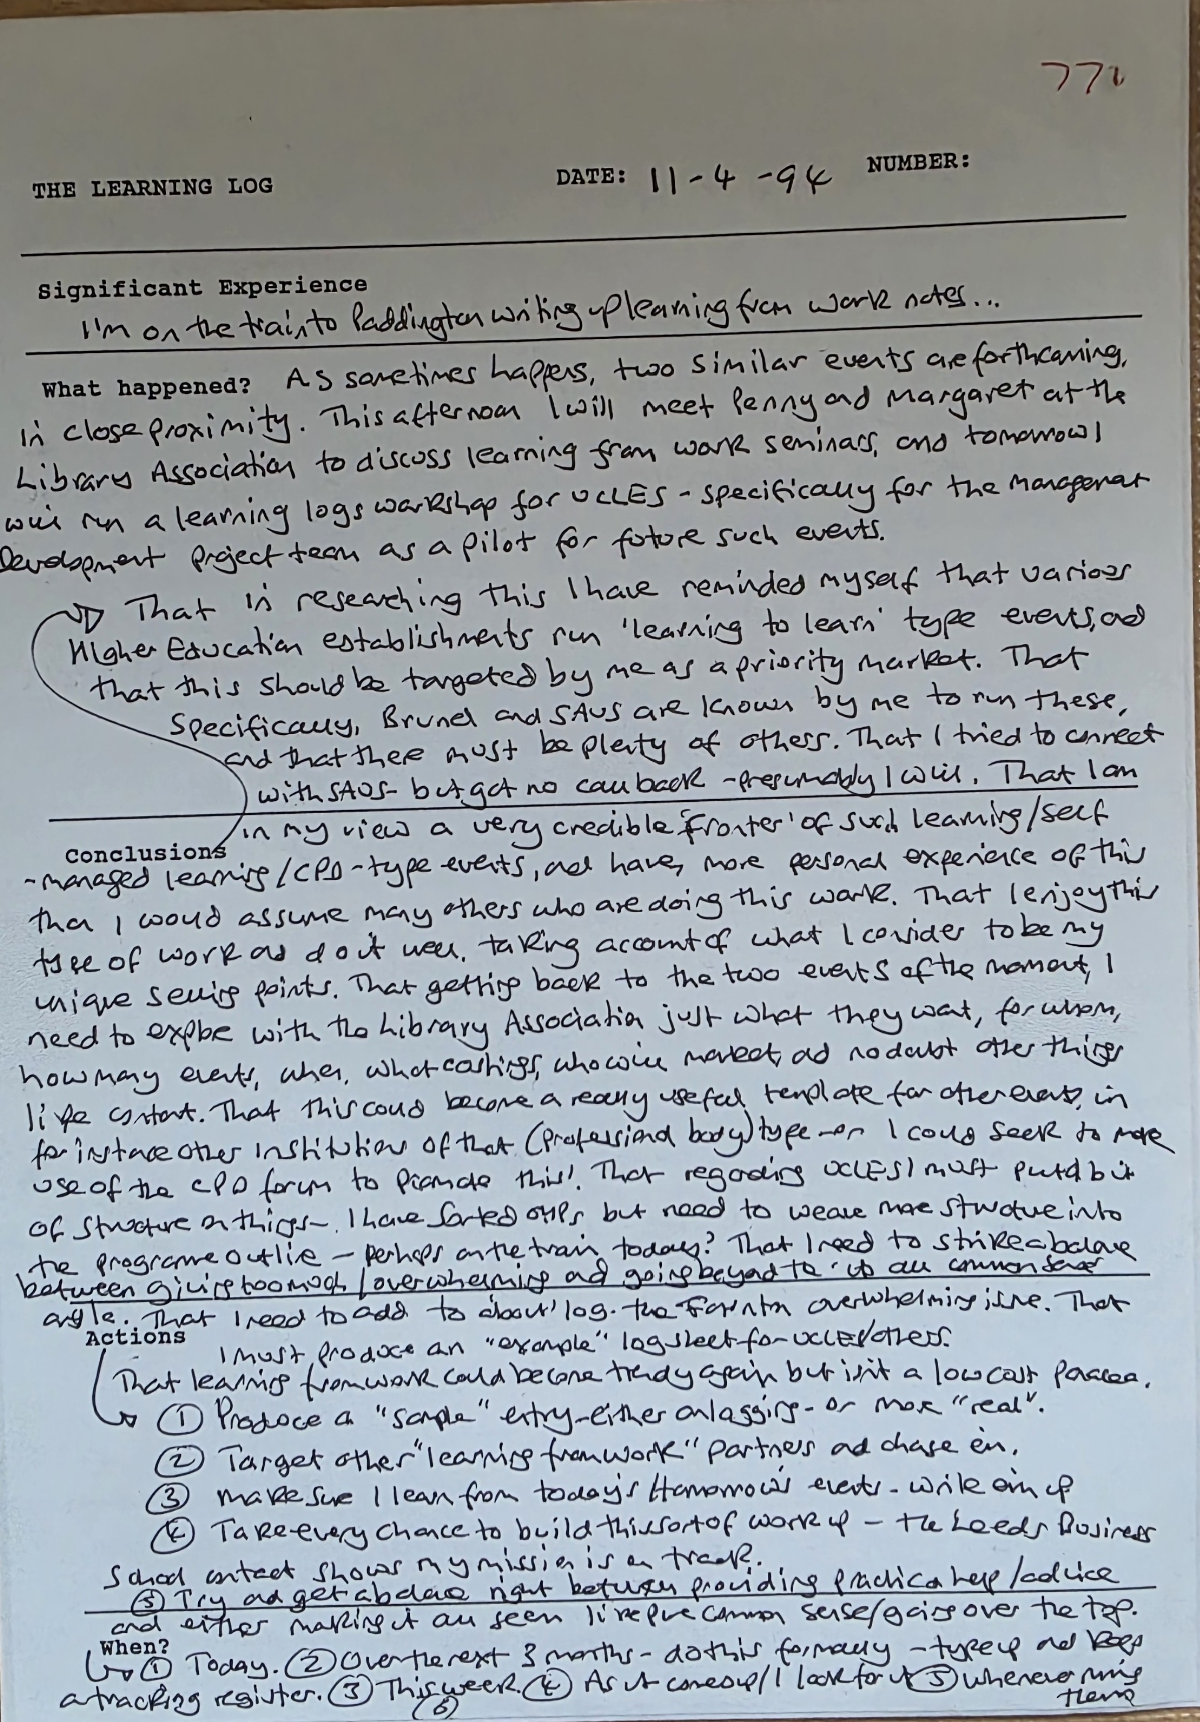 771
THE LEARNING LOG DATE: 11-4-94 NUMBER:
Significant Experience
I'm on the train to Paddington writing up learning from work notes...
What happened? As sometimes happens, two similar events are forthcoming,
in close proximity. This afternoon I will meet Penny and Margaret at the
Library Association to discuss learning from work seminars, and tomorrow I
will run a learning logs workshop for UCLES - specifically for the Management
Development project team as a pilot for future such events.
That in researching this I have reminded myself that various
Higher Education establishments run 'learning to learn' type events, and
that this should be targeted by me as a priority market. That
specifically, Brunel and SAUS are known by me to run these,
and that there must be plenty of others. That I tried to connect
with SAUS - but got no call back - presumably I will. That I am
in my view a very credible 'fronter' of such learning/self
Conclusions
-managed learning/CPD-type events, and have more personal experience of this
than I would assume many others who are doing this work. That I enjoy this
type of work and do it well, taking account of what I consider to be my
unique selling points. That getting back to the two events of the moment, I
need to explore with the Library Association just what they want, for whom,
how many events, when, what costings, who will market, and no doubt other things
like content. That this could become a really useful template for other events, in
for instance other institutions of that (professional body) type - or I could seek to make
use of the CPD forum to promote this!. That regarding UCLES I must put a bit
of structure on things - I have sorted OHPs but need to weave more structure into
the programme outline - perhaps on the train today? That I need to strike a balance
between giving too much/overwhelming and going beyond the 'it's all common sense'
angle. That I need to add to 'about' log. the overwhelming issue. That
Actions
I must produce an "example" log sheet for UCLES/others.
That learning from work could become trendy again but isn't a low cost panacea.
① Produce a "sample" entry - either on logging - or more "real".
② Target other "learning from work" partners and chase em.
③ Make sure I learn from today's/tomorrow's events - write em up
④ Take every chance to build this sort of work up - the Leeds Business
School contact shows my mission is on track.
⑤ Try and get a balance right between providing practical help/advice
and either making it all seem like pure common sense/going over the top.
When?
① Today. ② Over the next 3 months - do this formally - type up and keep
a tracking register. ③ This week. ④ As it comes up/I look for it ⑤ whenever
⑥